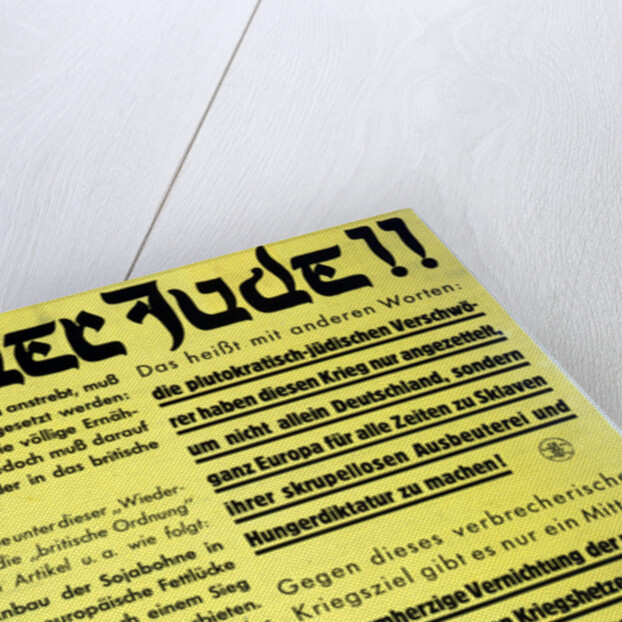 er Jude!!
anstrebt, muß
gesetzt werden:
ie völlige Ernäh-
doch muß darauf
der in das britische
unter dieser „Wieder-
die „britische Ordnung"
Artikel u. a. wie folgt:
nbau der Sojabohne in
europäische Fettlücke
h einem Sieg
bieten.
Das heißt mit anderen Worten:
die plutokratisch-jüdischen Verschwö-
rer haben diesen Krieg nur angezettelt,
um nicht allein Deutschland, sondern
ganz Europa für alle Zeiten zu Sklaven
ihrer skrupellosen Ausbeuterei und
Hungerdiktatur zu machen!
Gegen dieses verbrecherische
Kriegsziel gibt es nur ein Mitt
mherzige Vernichtung der
Kriegshetze